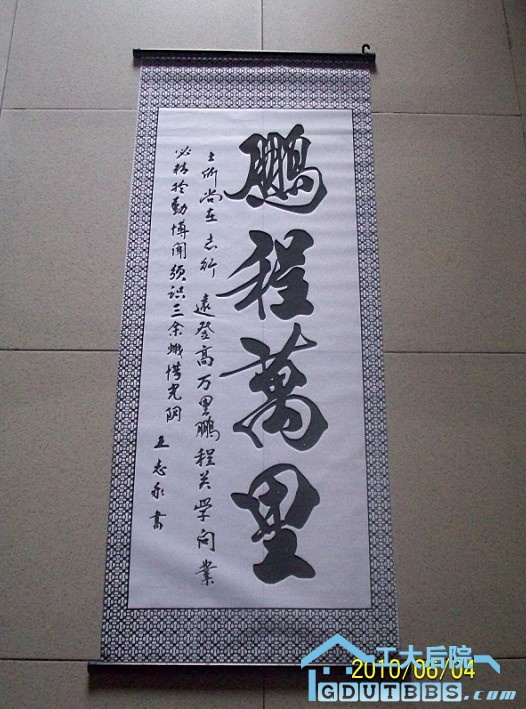 鵬程萬里
士所尚在志行遠登高万里鵬程关学问業
必精於勤博闻须识三余蛾惜光阴
王志永書
2010/06/04
工大后院
GDUTBBS.com